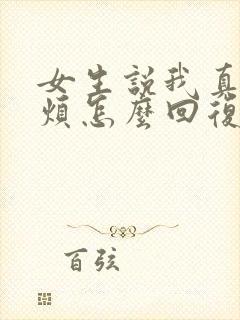 女生說我真
煩怎麼回復
百弦